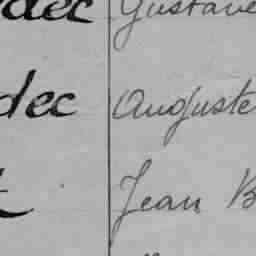 dec Gustave
dec Auguste
Jean B